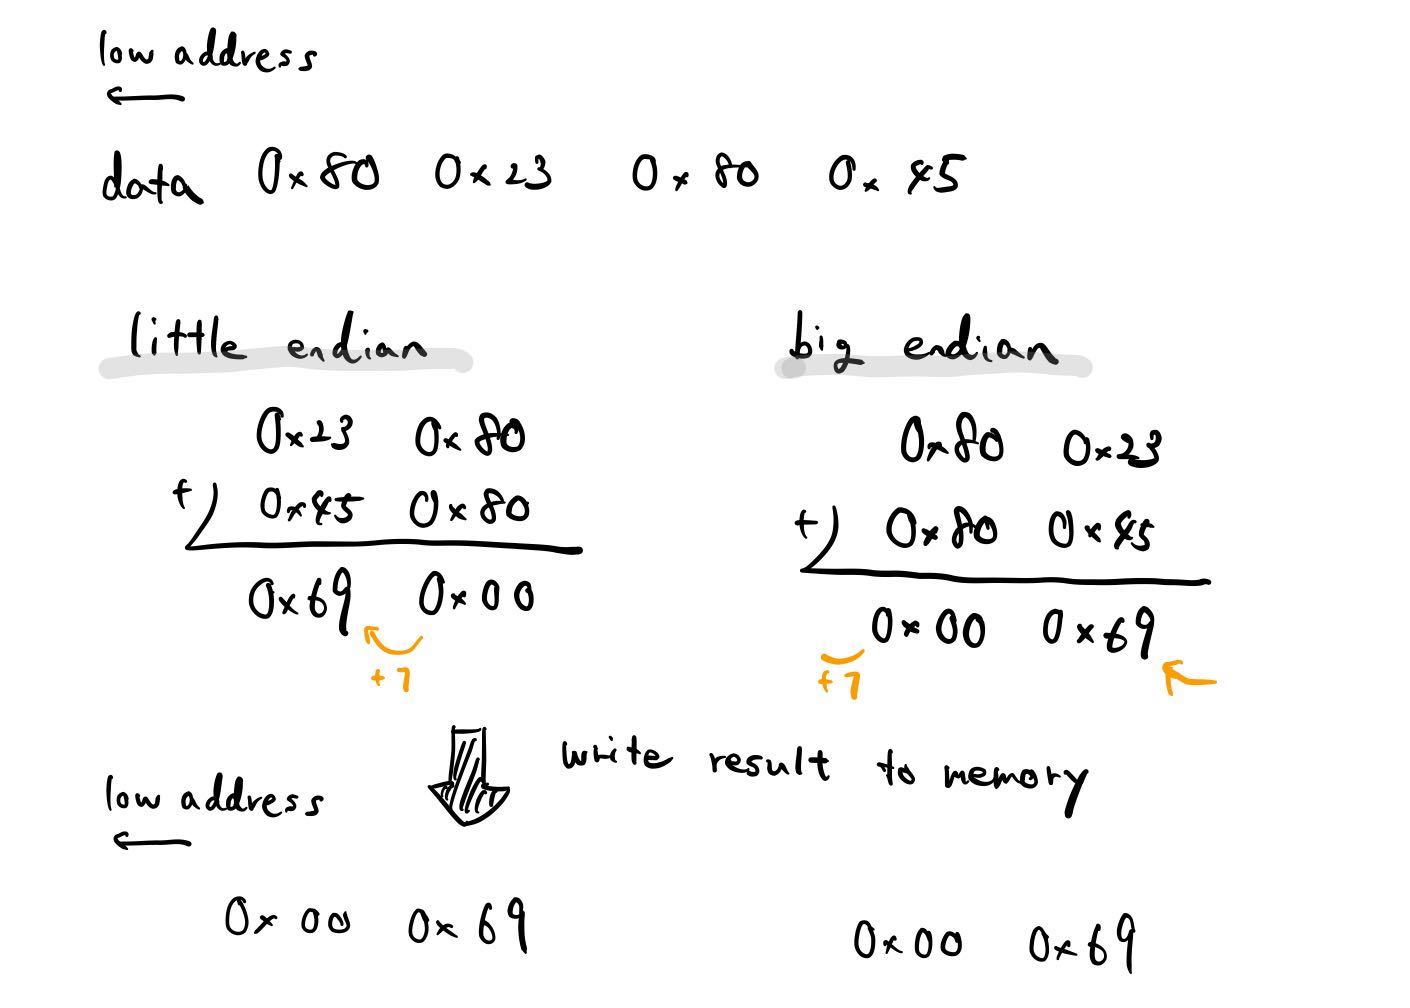 low address
←
data 0x80 0x23 0x80 0x45
little endian
0x23 0x80
+) 0x45 0x80
0x69 0x00
+1
big endian
0x80 0x23
+) 0x80 0x45
0x00 0x69
+1
write result to memory
low address
←
0x00 0x69
0x00 0x69